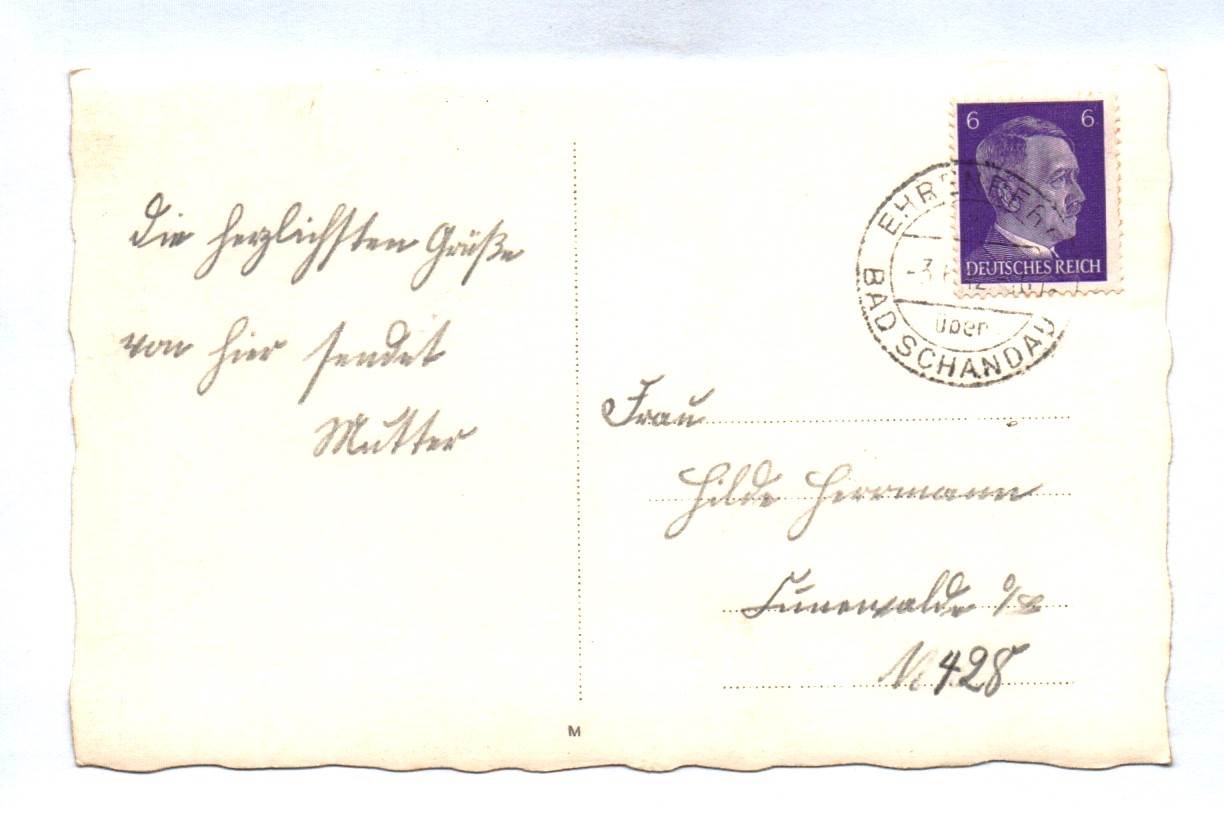 Die herzlichsten Grüße
von hier sendet
Mutter
6 6
DEUTSCHES REICH
EHRENBERG
über
BAD SCHANDAU
Frau
Hilde Herrmann
Cunewalde o/L
N 428
M